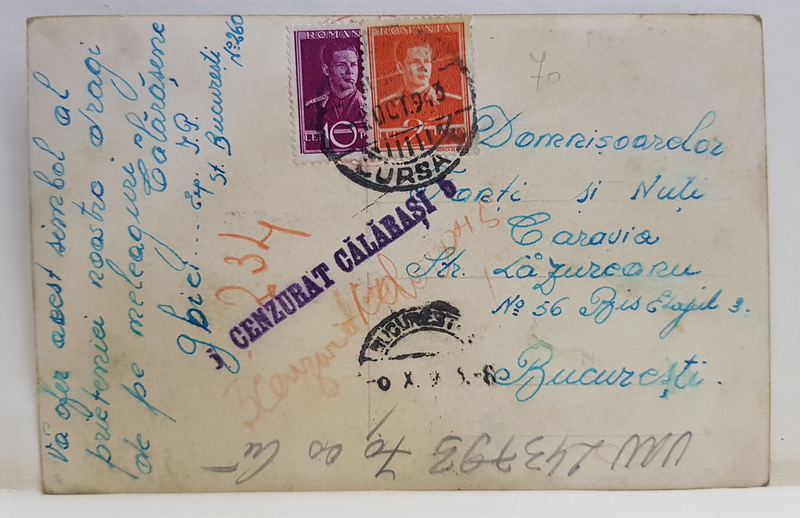 Vă ofer acest simbol al
prieteniei noastre dragi
de pe meleaguri
Călărășene
ghici...
Exp. I.P.
St. București
No 260
ROMANIA
ROMANIA
LEI 10
2
OCT. 943
CURSA
70
Domnișoarelor
și Nuți
Caravia
Str. Lăzureanu
No 56 Bis Etajul 3.
București.
CENZURAT CĂLĂRAȘI 6
234
BUCUREȘTI
243793